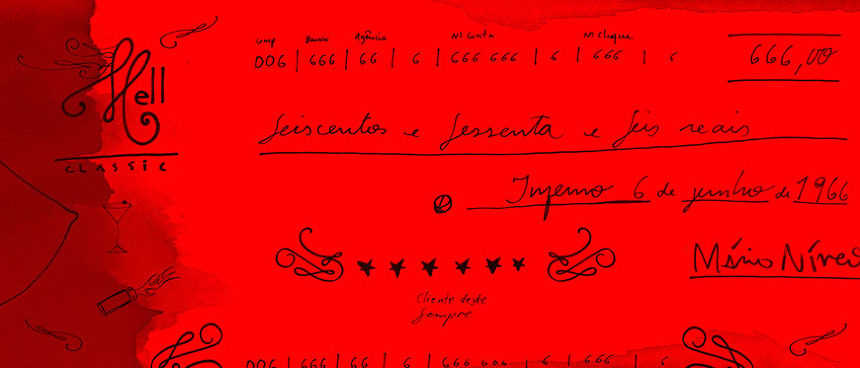 Hell
CLASSIC
Comp Banco Agência Nº Conta Nº Cheque
006 | 666 | 66 | 6 | 666 666 | 6 | 666 | 6
666,00
Seiscentos e sessenta e seis reais
Inferno 6 de junho de 1966
Cliente desde
sempre
006 | 666 | 66 | 6 | 666 606 | 6 | 666 | 6